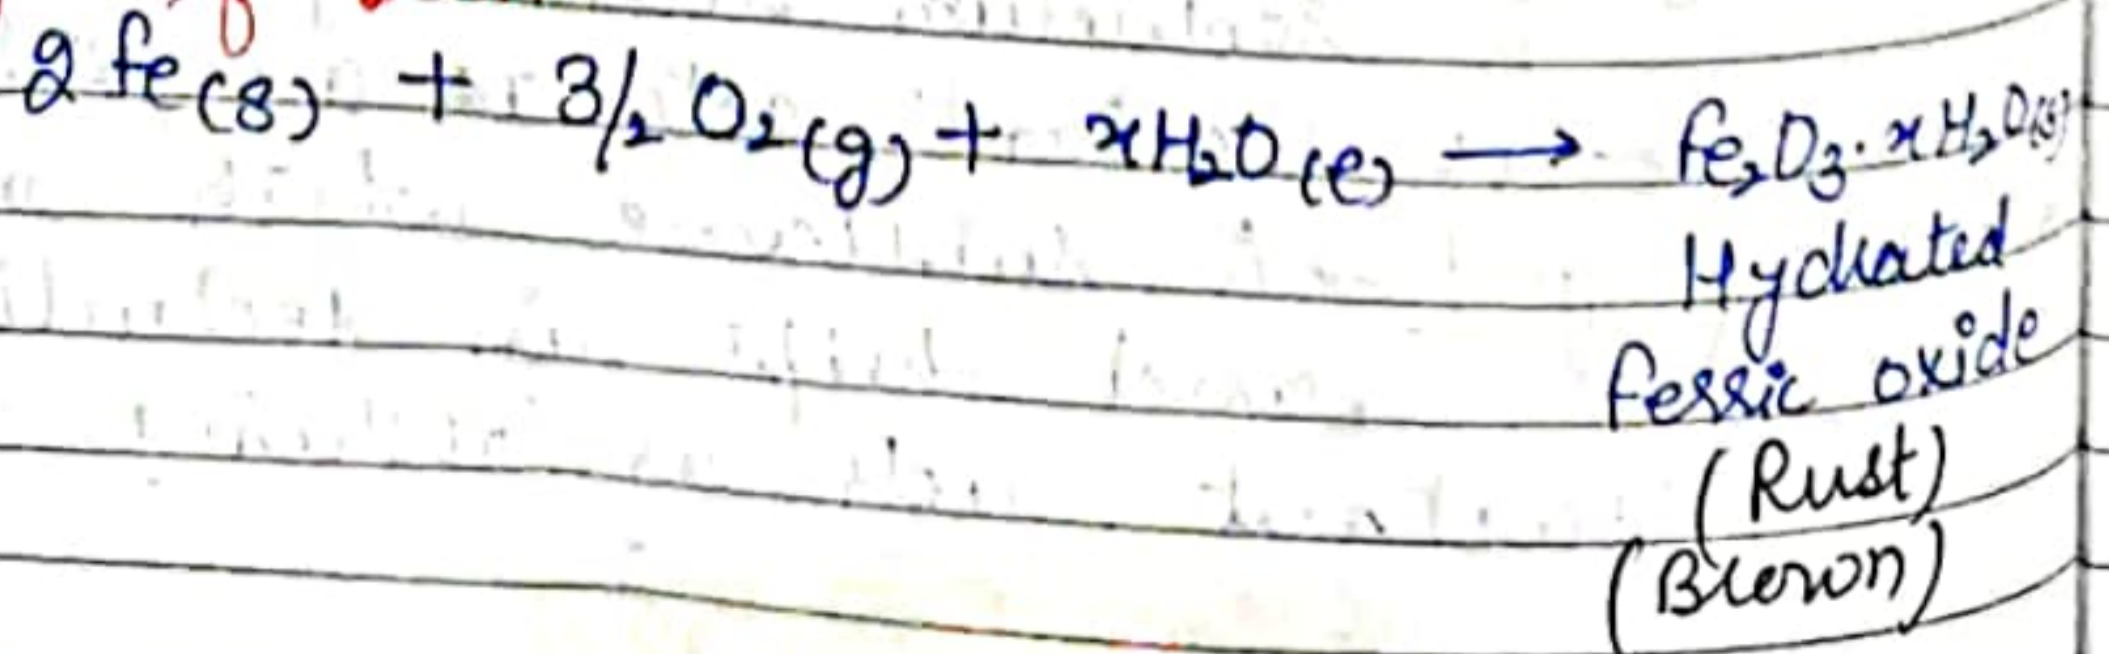 2 Fe(s) + 3/2 O₂(g) + xH₂O(l) → Fe₂O₃·xH₂O(s)
Hydrated
ferric oxide
(Rust)
(Brown)